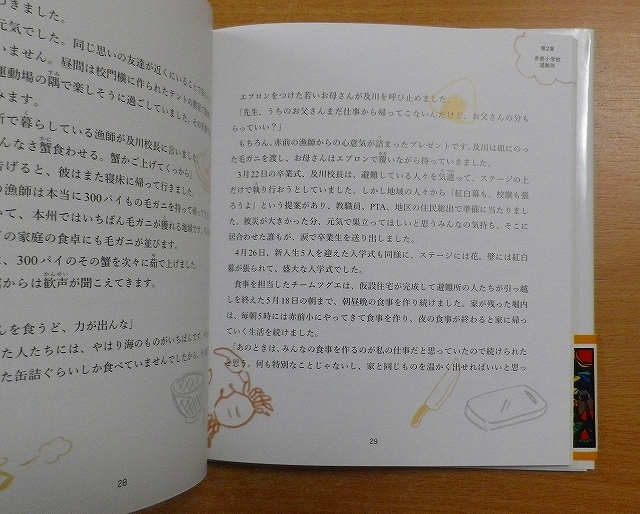 きました。
元気でした。同じ思いの友達が近くにいること
いません。昼間は校門横に作られたテントの
運動場の隅で楽しそうに過ごしていました。
みます。
所で暮らしている漁師が及川校長に言いました
んなさ蟹食わせる。蟹かご上げてくっから」
告げると、彼はまた寝床に帰って行きました。
の漁師は本当に300パイもの毛ガニを持って帰って
いて、本州ではいちばん毛ガニが獲れる地域です。
の家庭の食卓にも毛ガニが並びます。
に、300パイのその蟹を次々に茹で上げました。
からは歓声が聞こえてきます。
んを食うど、力が出んな」
た人たちには、やはり海のものがいちばんです。
た缶詰ぐらいしか食べていませんでしたから、
28
第2章
赤前小学校
避難所
エプロンをつけた若いお母さんが及川を呼び止めました。
「先生、うちのお父さんまだ仕事から帰ってこないんだけど、お父さんの分も
らっていい?」
もちろん、赤前の漁師からの心意気が詰まったプレゼントです。及川は皿にのっ
た毛ガニを渡し、お母さんはエプロンで覆いながら持っていきました。
3月22日の卒業式、及川校長は、避難している人々を気遣って、ステージの上
だけで執り行おうとしていました。しかし地域の人々から「紅白幕も、校旗も張
ろうよ」という提案があり、教職員、PTA、地区の住民総出で準備に当たりまし
た。被災が大きかった分、元気で巣立ってほしいと思うみんなの気持ち、そこに
居合わせた誰もが、涙で卒業生を送り出しました。
4月26日、新入生5人を迎えた入学式も同様に、ステージには花。壁には紅白
幕が張られて、盛大な入学式でした。
食事を担当したチームツグエは、仮設住宅が完成して避難所の人たちが引っ越
しを終えた5月18日の朝まで、朝昼晩の食事を作り続けました。家が残った堀内
は、毎朝5時には赤前小にやってきて食事を作り、夜の食事が終わると家に帰っ
ていく生活を続けました。
「あのときは、みんなの食事を作るのが私の仕事だと思っていたので続けられた
と思う。何も特別なことじゃないし、家と同じものを温かく出せればいいと思っ
29